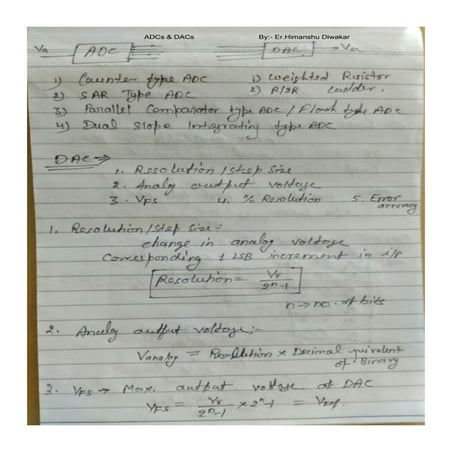 ADCs & DACs By:- Er.Himanshu Diwakar
Va ADC DAC Va
1) Counter type ADC 1) Weighted Resistor
2) SAR Type ADC 2) R/2R Ladder.
3) Parallel Comparator type ADC / Flash type ADC
4) Dual Slope Integrating type ADC
DAC →
1. Resolution / step size
2. Analog output voltage
3. VFS 4. % Resolution 5. Error accuracy
1. Resolution / step size :-
change in analog voltage
Corresponding 1 LSB increment in i/p
Resolution = Vr / 2ⁿ-1
n → no. of bits
2. Analog output voltage :-
Vanalog = Resolution × Decimal equivalent of Binary
3. VFS → Max. output voltage of DAC
VFS = Vr / 2ⁿ-1 × 2ⁿ-1 = Vref.